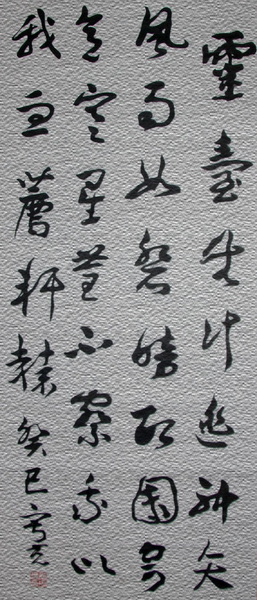 靈臺無計逃神矢
風雨如磐暗故園寄
意寒星荃不察我以
我血薦軒轅癸巳